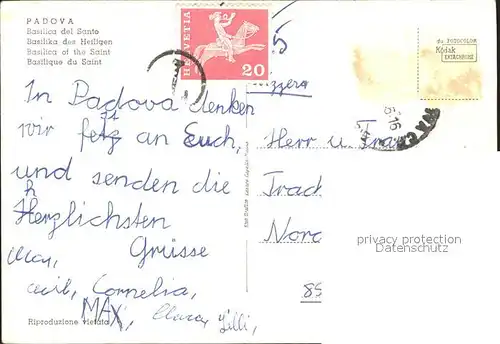 PADOVA
Basilica del Santo
Basilika des Heiligen
Basilica of the Saint
Basilique du Saint
HELVETIA
20
5
vizzera
da FOTOCOLOR
Kodak
EKTACHROME
In Padova denken
wir fest an Euch,
und senden die
Herzlichsten
Grüsse
Cornelia,
MAX,
Herr u. Frau
Trach
Nord
85
privacy protection
Datenschutz
Riproduzione vietata